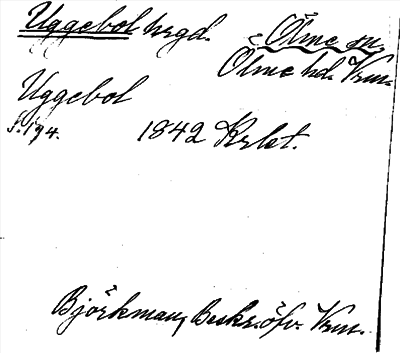 Uggebol hrgd. Ölme sn.
Ölme hd. Vrm.
Uggebol
S. 194. 1842 Krlet.
Björkman, Beskr. öfv. Vrm.